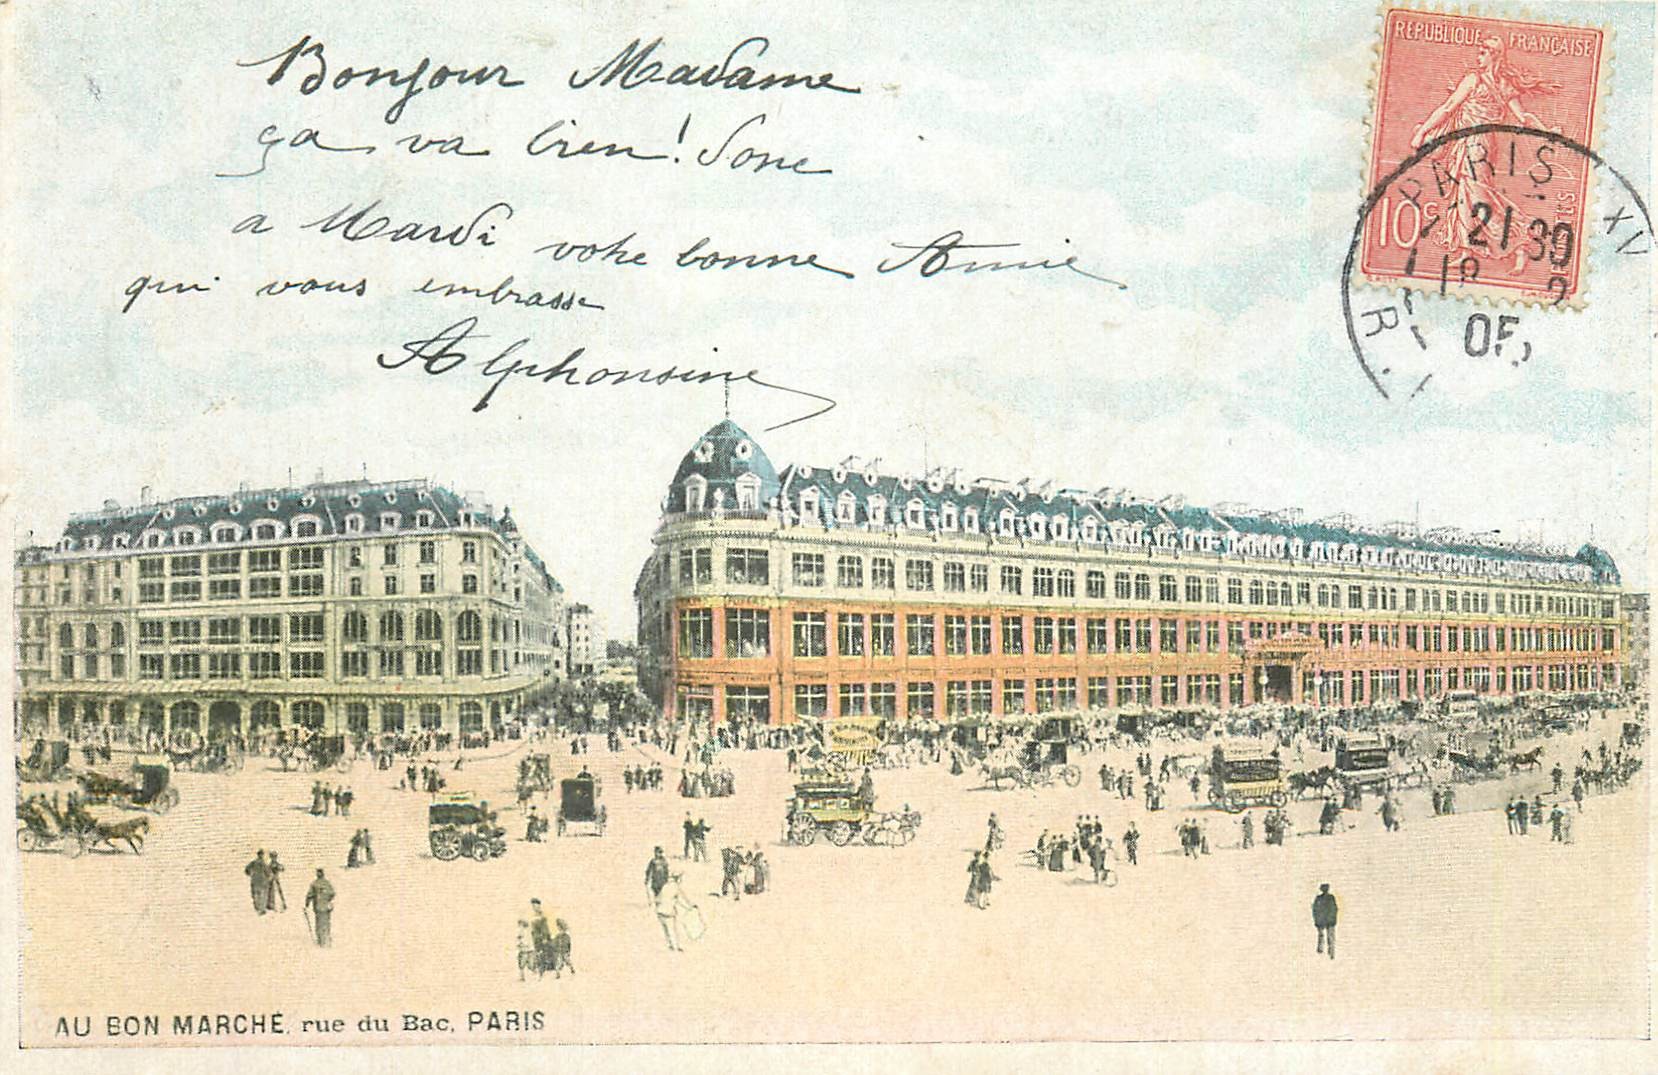 Bonjour Madame
ça va bien! Donc
a Mardi votre bonne Amie
qui vous embrasse
Alphonsine
REPUBLIQUE FRANÇAISE
10c
POSTES
PARIS XV
21 30
18 2
05
R.
AU BON MARCHÉ, rue du Bac, PARIS